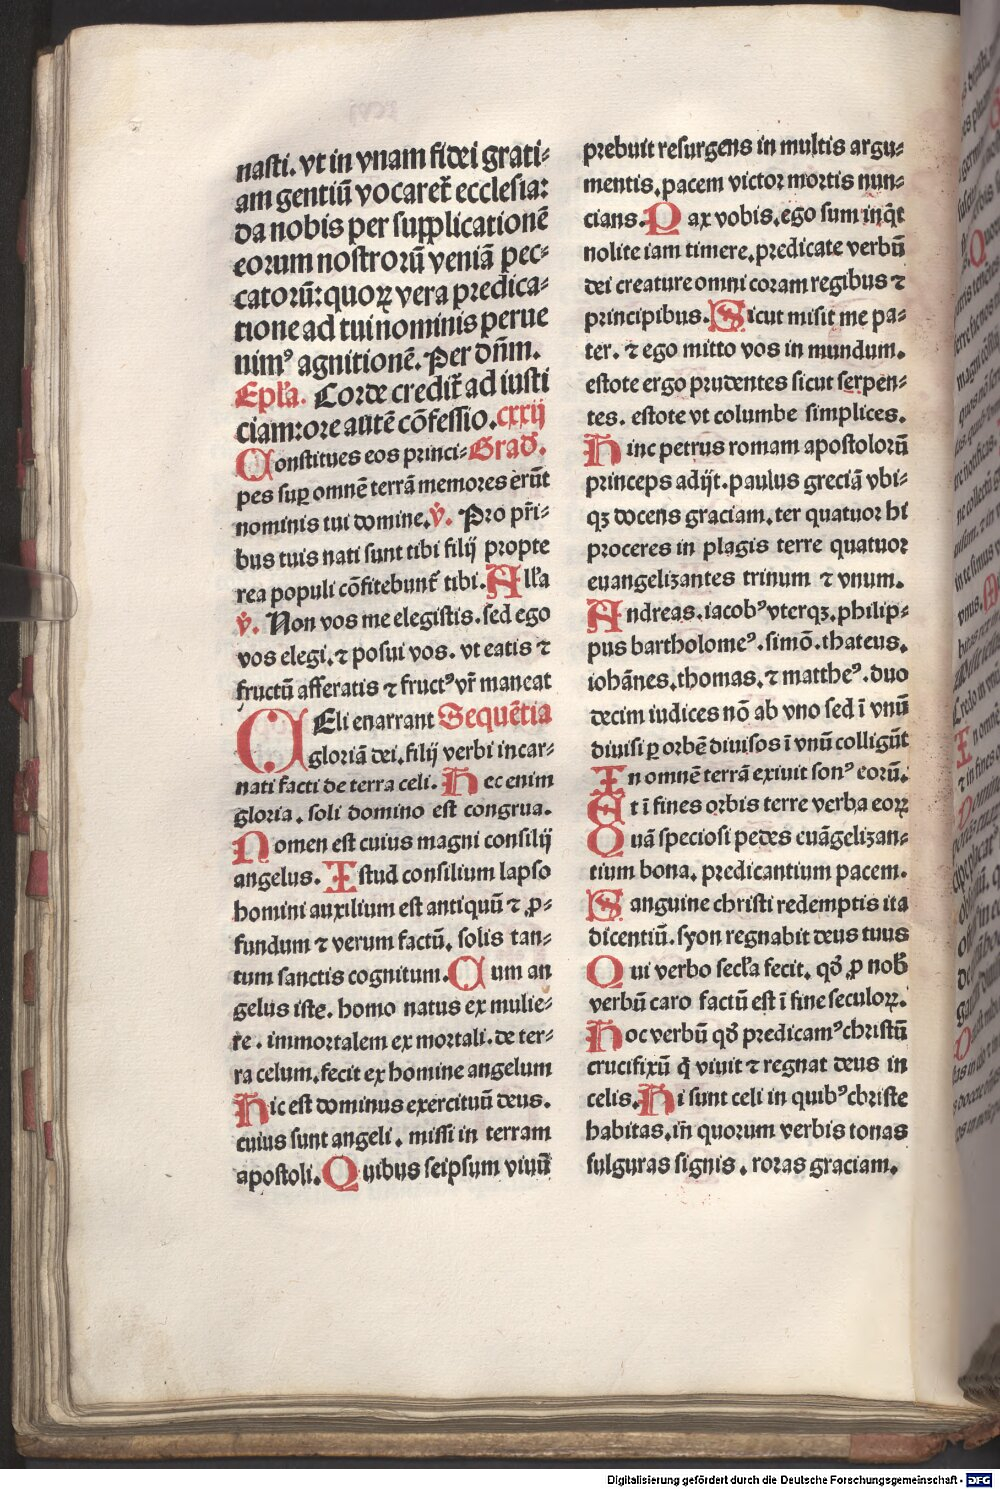 nasti. vt in vnam fidei grati⸗
am gentiū vocaret᷑ ecclesia:
da nobis per supplicationē
eorum nostrorū veniā pec⸗
catorū: quoꝝ vera predica⸗
tione ad tui nominis perue
nimꝰ agnitionē. Per dn̄m.
Epl'a. Corde credit᷑ ad iusti
ciam: ore autē cōfessio. cxxij
Constitues eos princi⸗ Grad̄.
pes sup̱ omnē terrā memores erūt
nominis tui domine. v̇. Pro pr̄i⸗
bus tuis nati sunt tibi filij propte
rea populi cōfitebunt᷑ tibi. All'a
v̇. Non vos me elegistis. sed ego
vos elegi. ⁊ posui vos. vt eatis ⁊
fructū afferatis ⁊ fructꝰ vr̄ maneat
CEli enarrant Sequētia
gloriā dei. filij verbi incar⸗
nati facti de terra celi. Hec enim
gloria. soli domino est congrua.
Nomen est cuius magni consilij
angelus. Istud consilium lapso
homini auxilium est antiquū ⁊ ꝓ⸗
fundum ⁊ verum factū. solis tan⸗
tum sanctis cognitum. Cum an
gelus iste. homo natus ex mulie⸗
re. immortalem ex mortali. de ter⸗
ra celum. fecit ex homine angelum
Hic est dominus exercituū deus.
cuius sunt angeli. missi in terram
apostoli. Quibus seipsum viuū
prebuit resurgens in multis argu⸗
mentis. pacem victor mortis nun⸗
cians. Pax vobis. ego sum inq̄t
nolite iam timere. predicate verbū
dei creature omni coram regibus ⁊
principibus. Sicut misit me pa⸗
ter. ⁊ ego mitto vos in mundum.
estote ergo prudentes sicut serpen⸗
tes. estote vt columbe simplices.
Hinc petrus romam apostolorū
princeps adijt. paulus greciā vbi⸗
qꝫ docens graciam. ter quatuor hi
proceres in plagis terre quatuor
euangelizantes trinum ⁊ vnum.
Andreas. iacobꝰ vterqꝫ. philip⸗
pus bartholomeꝰ. simō. thateus.
iohānes. thomas. ⁊ mattheꝰ. duo
decim iudices nō ab vno sed ī vnū
diuisi ꝑ orbē diuisos ī vnū colligūt
In omnē terrā exiuit sonꝰ eorū.
Et ī fines orbis terre verba eoꝝ
Quā speciosi pedes euāgelizan⸗
tium bona. predicantium pacem.
Sanguine christi redemptis ita
dicentiū. syon regnabit deus tuus
Qui verbo secl'a fecit. qḋ ꝓ nob̄
verbū caro factū est ī fine seculoꝝ.
Hoc verbū qḋ predicamꝰ christū
crucifixū q̇ viuit ⁊ regnat deus in
celis. Hi sunt celi in quibꝰ christe
habitas. in̄ quorum verbis tonas
fulguras signis. roras graciam.
Digitalisierung gefördert durch die Deutsche Forschungsgemeinschaft - DFG